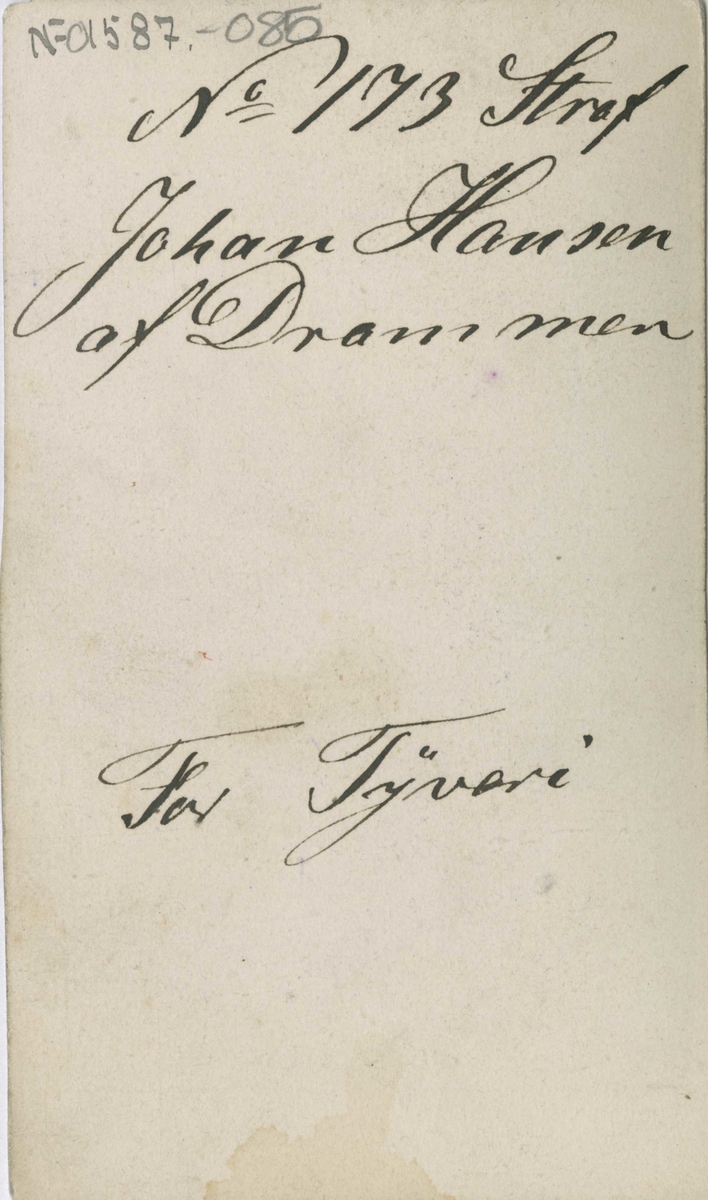 NF-01587-085
No 173 Straf
Johan Hansen
af Drammen
For Tÿveri